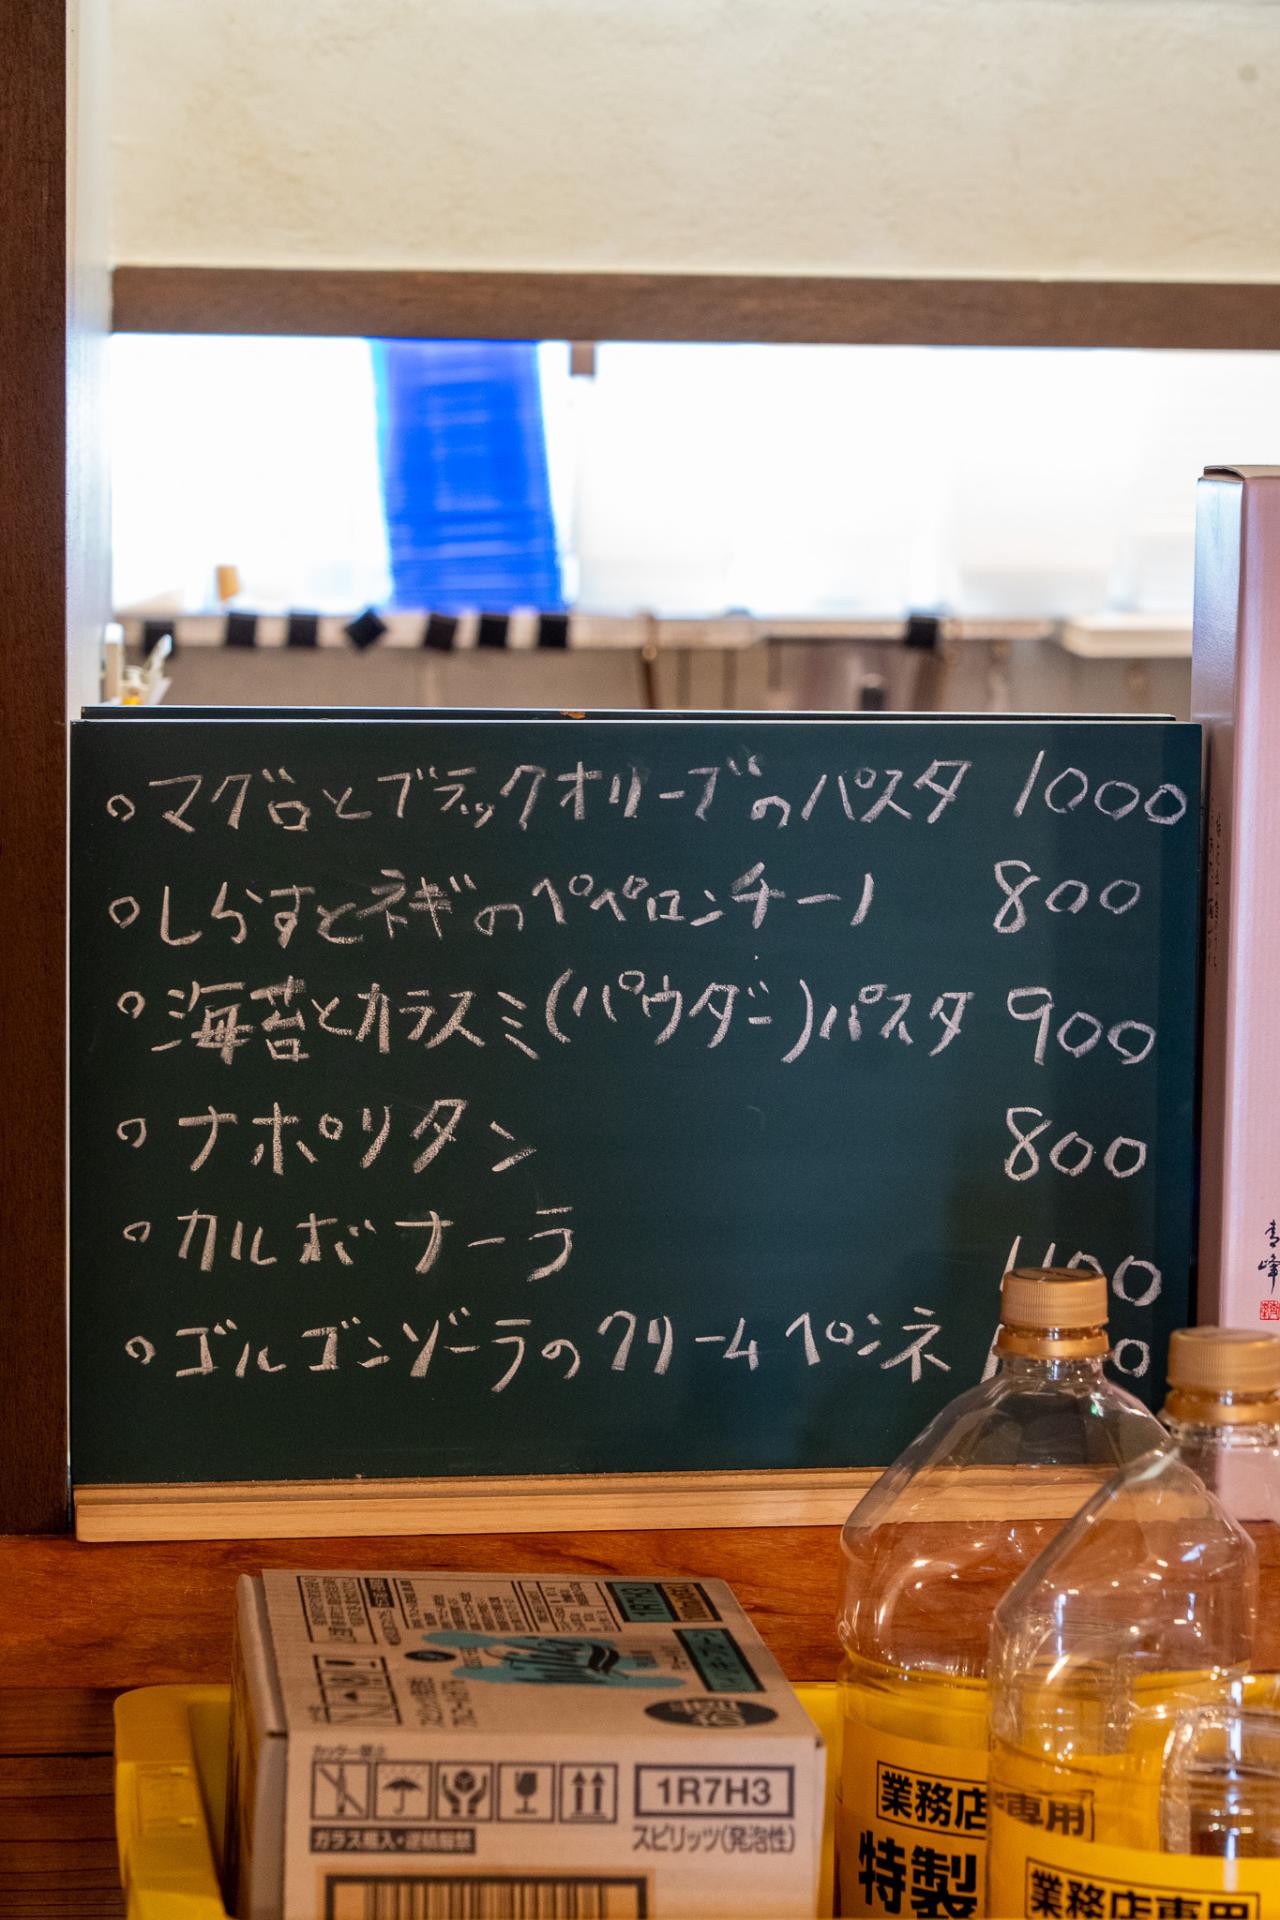 マグロとブラックオリーブのパスタ 1000
しらすとネギのペペロンチーノ 800
海苔とカラスミ(パウダー)パスタ 900
ナポリタン 800
カルボナーラ
ゴルゴンゾーラのクリームペンネ
青峰
1R7H3
カッター禁止
1R7H3
ガラス瓶入・連続縦禁
スピリッツ(発泡性)
業務店専用
特製
業務店専用